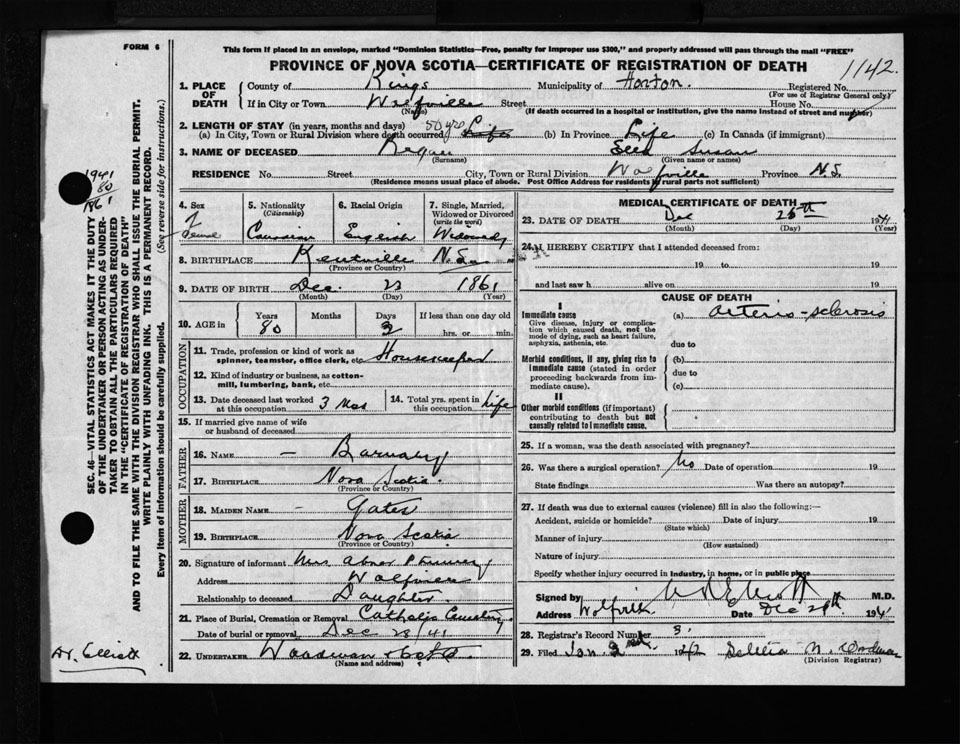 FORM 6
This form if placed in an envelope, marked "Dominion Statistics—Free, penalty for improper use $300," and properly addressed will pass through the mail "FREE"
PROVINCE OF NOVA SCOTIA—CERTIFICATE OF REGISTRATION OF DEATH
1142.
1. PLACE OF DEATH County of Kings Municipality of Horton. Registered No.
(For use of Registrar General only.)
If in City or Town Wolfville Street House No.
(Name) (If death occurred in a hospital or institution, give the name instead of street and number)
2. LENGTH OF STAY (in years, months and days) 50 yrs
(a) In City, Town or Rural Division where death occurred Life (b) In Province Life (c) In Canada (if immigrant)
3. NAME OF DECEASED Regan Susan
(Surname) (Given name or names)
RESIDENCE No. Street City, Town or Rural Division Wolfville Province N.S.
(Residence means usual place of abode. Post Office Address for residents in rural parts not sufficient)
4. Sex 5. Nationality (Citizenship) 6. Racial Origin 7. Single, Married, Widowed or Divorced (write the word)
Canadian English Widowed
8. BIRTHPLACE Kentville N.S.
(Province or Country)
9. DATE OF BIRTH Dec. 23 1861
(Month) (Day) (Year)
10. AGE in Years Months Days If less than one day old
80 3 hrs. or min.
OCCUPATION
11. Trade, profession or kind of work as spinner, teamster, office clerk, etc. Housekeeper
12. Kind of industry or business, as cotton-mill, lumbering, bank, etc.
13. Date deceased last worked at this occupation 3 mos 14. Total yrs. spent in this occupation Life
15. If married give name of wife or husband of deceased
FATHER
16. NAME — Barnaby
17. BIRTHPLACE Nova Scotia.
(Province or Country)
MOTHER
18. MAIDEN NAME — Gates
19. BIRTHPLACE Nova Scotia
(Province or Country)
20. Signature of informant Mrs. Abner
Address Wolfville
Relationship to deceased Daughter.
21. Place of Burial, Cremation or Removal Catholic Cemetery
Date of burial or removal Dec 28/41
22. UNDERTAKER Woodman
(Name and address)
MEDICAL CERTIFICATE OF DEATH
23. DATE OF DEATH Dec 26th 1941
(Month) (Day) (Year)
24. I HEREBY CERTIFY that I attended deceased from:
19 to 19
and last saw h alive on 19
CAUSE OF DEATH
I
Immediate cause (a) Arterio-sclerosis
Give disease, injury or complication which caused death, not the mode of dying, such as heart failure, asphyxia, asthenia, etc.
due to
Morbid conditions, if any, giving rise to immediate cause (stated in order proceeding backwards from immediate cause).
(b)
due to
(c)
II
Other morbid conditions (if important) contributing to death but not causally related to immediate cause.
25. If a woman, was the death associated with pregnancy?
26. Was there a surgical operation? No Date of operation 19
State findings Was there an autopsy?
27. If death was due to external causes (violence) fill in also the following:—
Accident, suicide or homicide? Date of injury 19
(State which)
Manner of injury
(How sustained)
Nature of injury
Specify whether injury occurred in industry, in home, or in public place
Signed by M.D.
Address Wolfville Date Dec 28th 1941
28. Registrar's Record Number 3
29. Filed Jan. 2nd 1942
(Division Registrar)
SEC. 46—VITAL STATISTICS ACT MAKES IT THE DUTY
OF THE UNDERTAKER OR PERSON ACTING AS UNDER-
TAKER TO OBTAIN ALL THE PARTICULARS REQUIRED
IN THE "CERTIFICATE OF REGISTRATION OF DEATH"
AND TO FILE THE SAME WITH THE DIVISION REGISTRAR WHO SHALL ISSUE THE BURIAL PERMIT.
WRITE PLAINLY WITH UNFADING INK. THIS IS A PERMANENT RECORD.
Every item of information should be carefully supplied. (See reverse side for instructions.)
1941
80
1861
Elliott